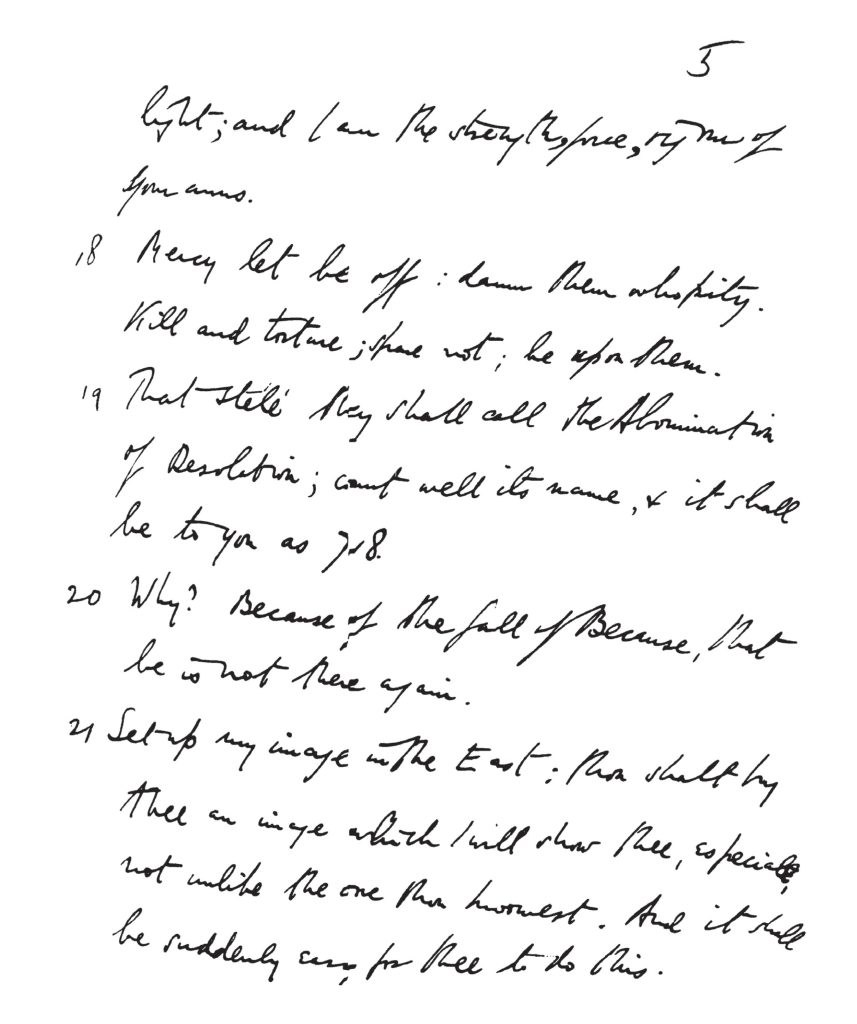 5
light; and I am the strength, force, vigour of
your arms.
18 Mercy let be off: damn them who pity.
Kill and torture; spare not; be upon them.
19 That stélé they shall call the Abomination
of Desolation; count well its name, & it shall
be to you as 718.
20 Why? Because of the fall of Because, that
he is not there again.
21 Set up my image in the East: thou shalt buy
thee an image which I will show thee, especial,
not unlike the one thou knowest. And it shall
be suddenly easy for thee to do this.